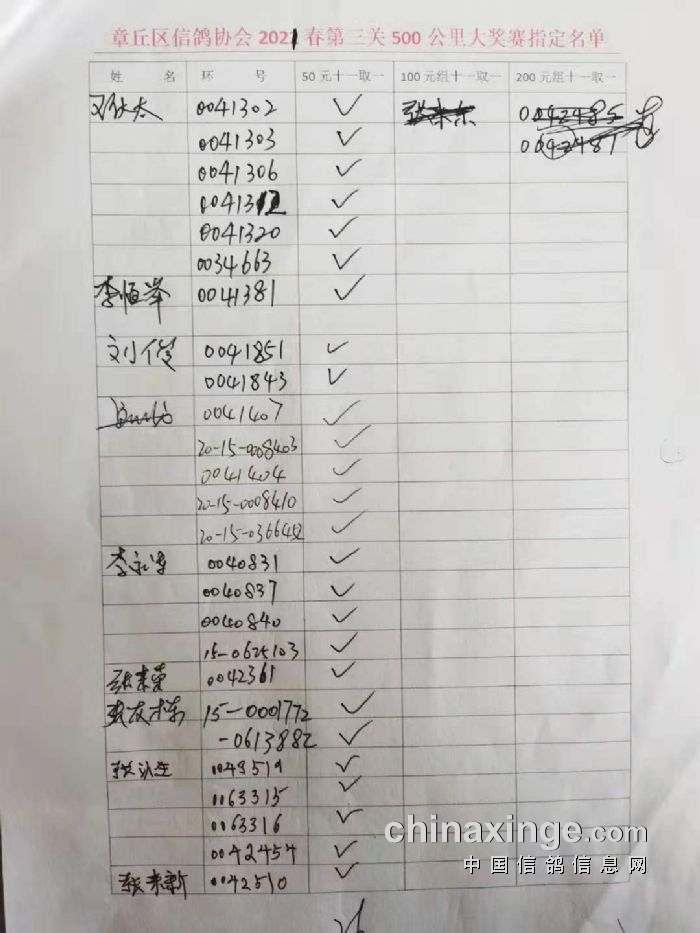 章丘区信鸽协会 2021 春第三关 500 公里大奖赛指定名单
姓 名 环 号 50 元十一取一 100 元组十一取一 200 元组十一取一
0041302 ✓
0041303 ✓
0041306 ✓
0041312 ✓
0041320 ✓
0034663 ✓
李恒举 0041381 ✓
刘俊 0041851 ✓
0041843 ✓
0041407 ✓
20-15-0008403 ✓
0041404 ✓
20-15-0008410 ✓
20-15-0366452 ✓
0040831 ✓
0040837 ✓
0040840 ✓
15-0625103 ✓
张素荣 0042361 ✓
15-0001772 ✓
-0613882 ✓
0048519 ✓
0063315 ✓
0063316 ✓
0042454 ✓
张来新 0042510 ✓
chinaxinge.com
中国信鸽信息网